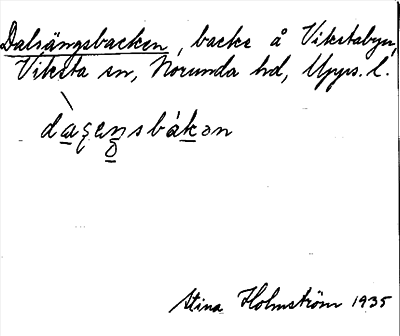 Dalsängsbacken, backe å Vikstabyn,
Viksta sn, Norunda hd, Upps. l.
daʂensbákən
Stina Holmström 1935